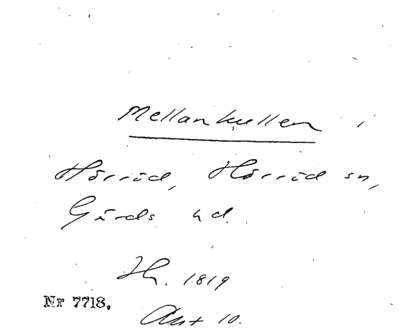 Mellankullen i
Hörröd, Hörröd sn,
Gärds hd.
Th. 1819
Akt 10.
Nr 7718.